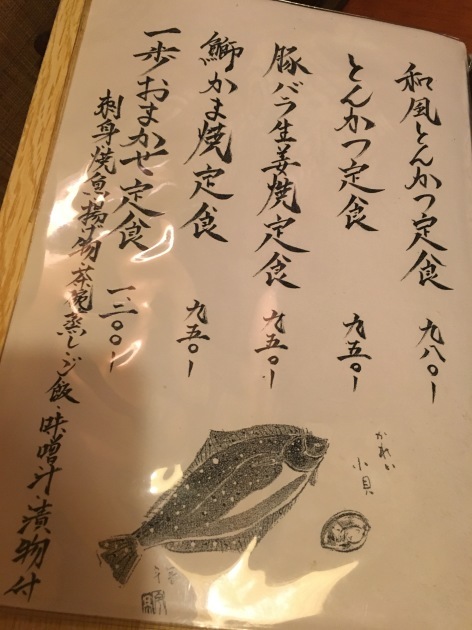 和風とんかつ定食 九八〇ー
とんかつ定食 九五〇ー
豚バラ生姜焼定食 九五〇ー
鰤かま焼定食 九五〇ー
一歩おまかせ定食 一三〇〇ー
刺身・焼魚・揚げ物・茶碗蒸し・ご飯・味噌汁・漬物付
かれい
小貝